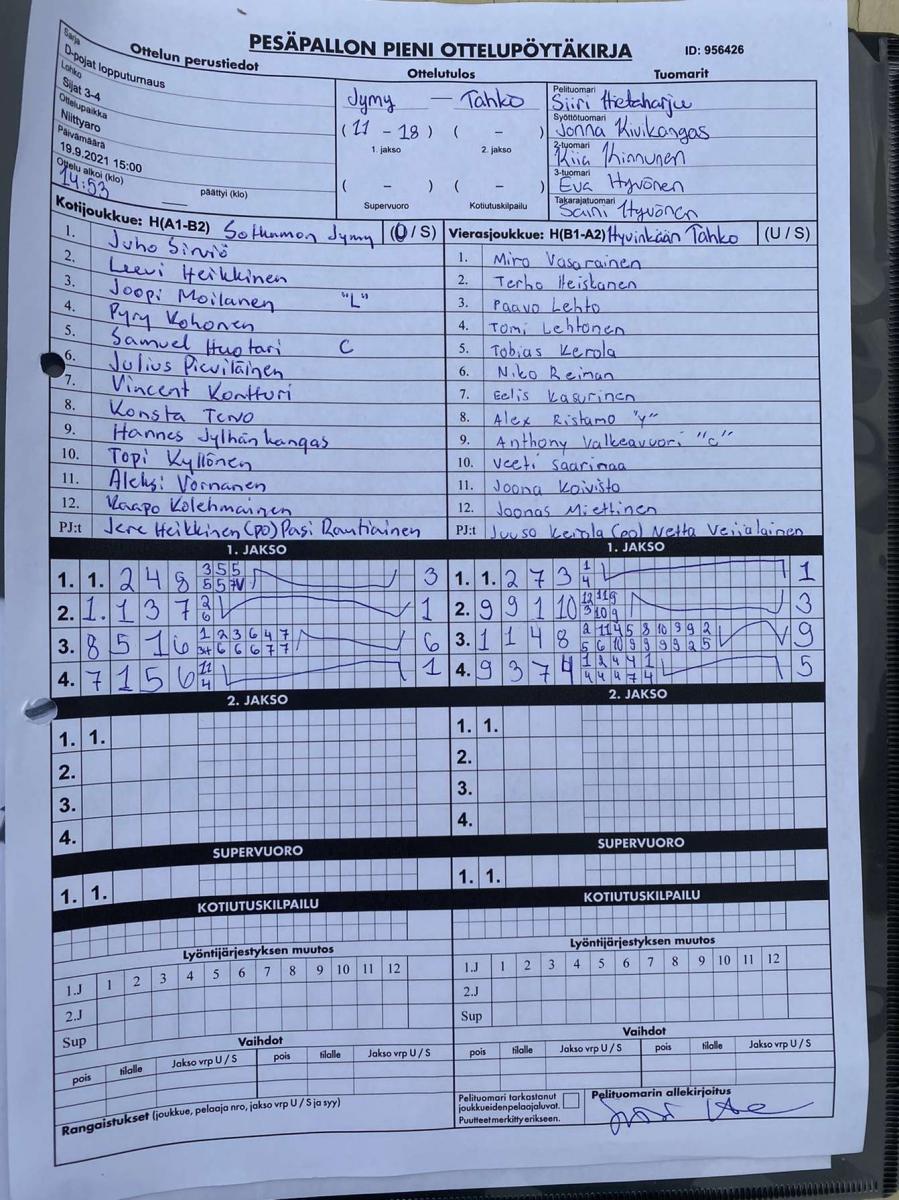 PESÄPALLON PIENI OTTELUPÖYTÄKIRJA
ID: 956426
Ottelun perustiedot
Sarja
D-pojat lopputurnaus
Lohko
Sijat 3-4
Ottelupaikka
Niittyaro
Päivämäärä
19.9.2021 15:00
Ottelu alkoi (klo)
14:53
päättyi (klo)
Ottelutulos
Jymy — Tahko
(11 - 18) ( - )
1. jakso 2. jakso
( - ) ( - )
Supervuoro Kotiutuskilpailu
Tuomarit
Pelituomari
Siiri Hietaharju
Syöttötuomari
Jonna Kivikangas
2-tuomari
Kiia Kinnunen
3-tuomari
Eva Hyvönen
Takarajatuomari
Saini Hyvönen
Kotijoukkue: H(A1-B2) Sotkamon Jymy (U / S)
1. Juho Sirviö
2. Leevi Heikkinen
3. Joopi Moilanen "L"
4. Pyry Kohonen
5. Samuel Huotari C
6. Julius Pieviläinen
7. Vincent Kontturi
8. Konsta Tervo
9. Hannes Jylhänkangas
10. Topi Kyllönen
11. Aleksi Vornanen
12. Kaapo Kolehmainen
PJ:t Jere Heikkinen (po) Pasi Rautiainen
Vierasjoukkue: H(B1-A2) Hyvinkään Tahko (U / S)
1. Miro Vasarainen
2. Terho Heiskanen
3. Paavo Lehto
4. Tomi Lehtonen
5. Tobias Kerola
6. Niko Reinan
7. Eelis Kasurinen
8. Alex Ristamo "y"
9. Anthony Valkeavuori "c"
10. Veeti Saarinaa
11. Joona Koivisto
12. Joonas Miettinen
PJ:t Juuso Kerola (po) Netta Veijalainen
1. JAKSO
1. 1. 2 4 8 3 5 5 3
5 5
2. 1. 1 3 7 2 1
6
3. 8 5 1 6 1 2 3 6 4 7 6
6 6 6 7 7
4. 7 1 5 6 11 1
4
1. JAKSO
1. 1. 2 7 3 1 1
4
2. 9 9 1 10 12 11 9 3
3 10 9
3. 1 1 4 8 2 11 4 5 8 10 9 9 2 9
5 6 10 9 9 9 9 2 5
4. 9 3 7 4 1 2 4 4 1 5
4 4 4 7 4
2. JAKSO
1. 1.
2.
3.
4.
2. JAKSO
1. 1.
2.
3.
4.
SUPERVUORO
1. 1.
SUPERVUORO
1. 1.
KOTIUTUSKILPAILU
KOTIUTUSKILPAILU
Lyöntijärjestyksen muutos
1.J 1 2 3 4 5 6 7 8 9 10 11 12
2.J
Sup
Lyöntijärjestyksen muutos
1.J 1 2 3 4 5 6 7 8 9 10 11 12
2.J
Sup
Vaihdot
pois tilalle Jakso vrp U / S pois tilalle Jakso vrp U / S
Vaihdot
pois tilalle Jakso vrp U / S pois tilalle Jakso vrp U / S
Rangaistukset (joukkue, pelaaja nro, jakso vrp U / S ja syy)
Pelituomari tarkastanut
joukkueiden pelaajaluvat.
Puutteet merkitty erikseen.
Pelituomarin allekirjoitus